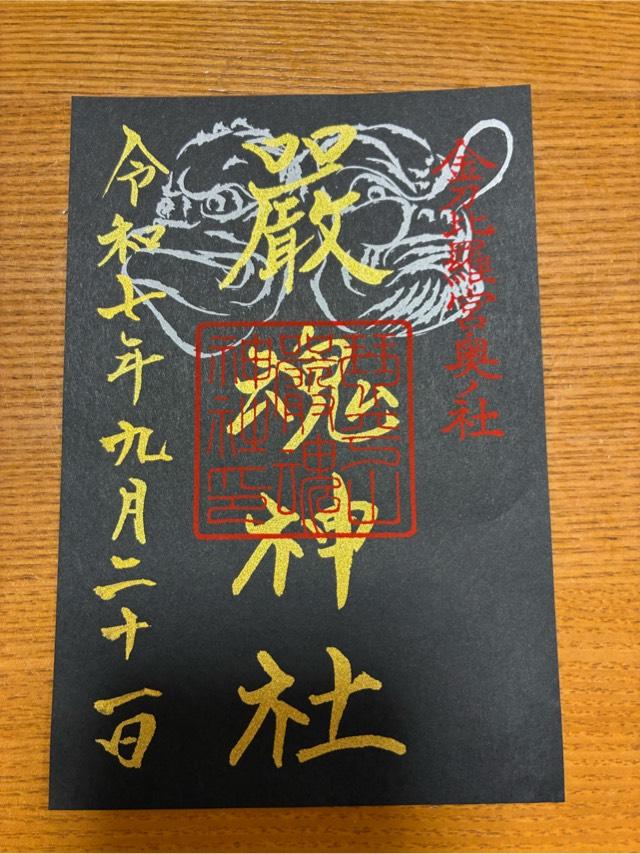 金刀比羅宮奥ノ社
嚴魂神社
令和七年九月二十一日